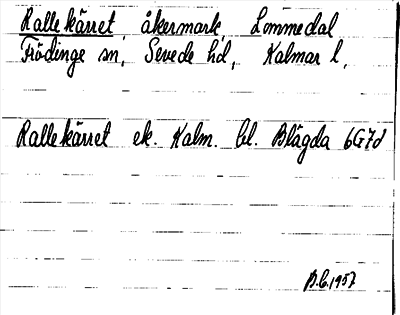 Rallekärret, åkermark, Lommedal
Frödinge sn, Sevede hd, Kalmar l,
Rallekärret ek. Kalm. bl. Blägda 6G7d
B.E. 1957